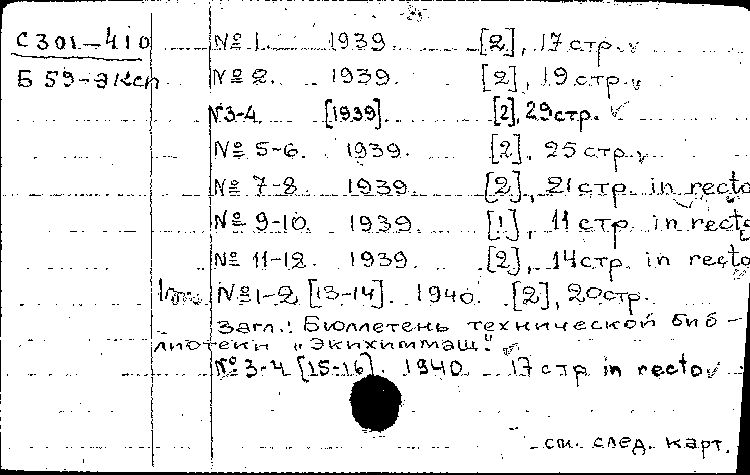 С301-410 №1. 1939. [2], 17 стр. v
Б 59-эксп №2. 1939. [2], 19 стр. v
№3-4. [1939]. [2], 29 стр. v
№5-6. 1939. [2], 25 стр. v
№7-8. 1939. [2], 21 стр. in recto
№9-10. 1939. [1], 11 стр. in recto
№11-12. 1939. [2], 14 стр. in recto
№1-2 [13-14]. 1940. [2], 20 стр.
Загл.: Бюллетень технической биб-
лиотеки „Экихиммаш". v
№3-4 [15-16]. 1940. 17 стр in recto v
см. след. карт.